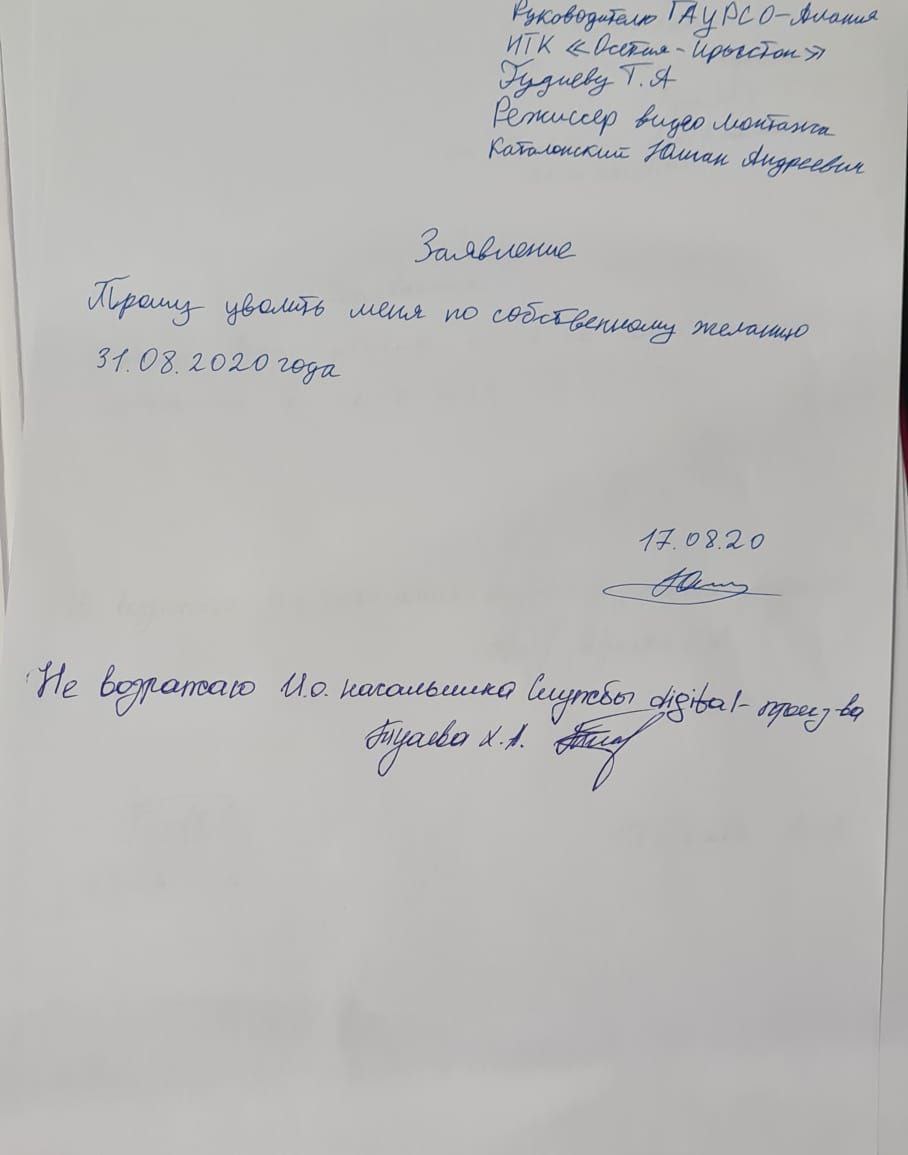 Руководителю ГАУРСО-Алания
ИТК «Осетия-Ирыстон»
Гудиеву Т.А
Режиссер видео монтажа
Каталонский Юлиан Андреевич
Заявление
Прошу уволить меня по собственному желанию
31.08.2020 года
17.08.20
Не возражаю И.о. начальника Службы digital-произ-ва
Туаева Х.А.